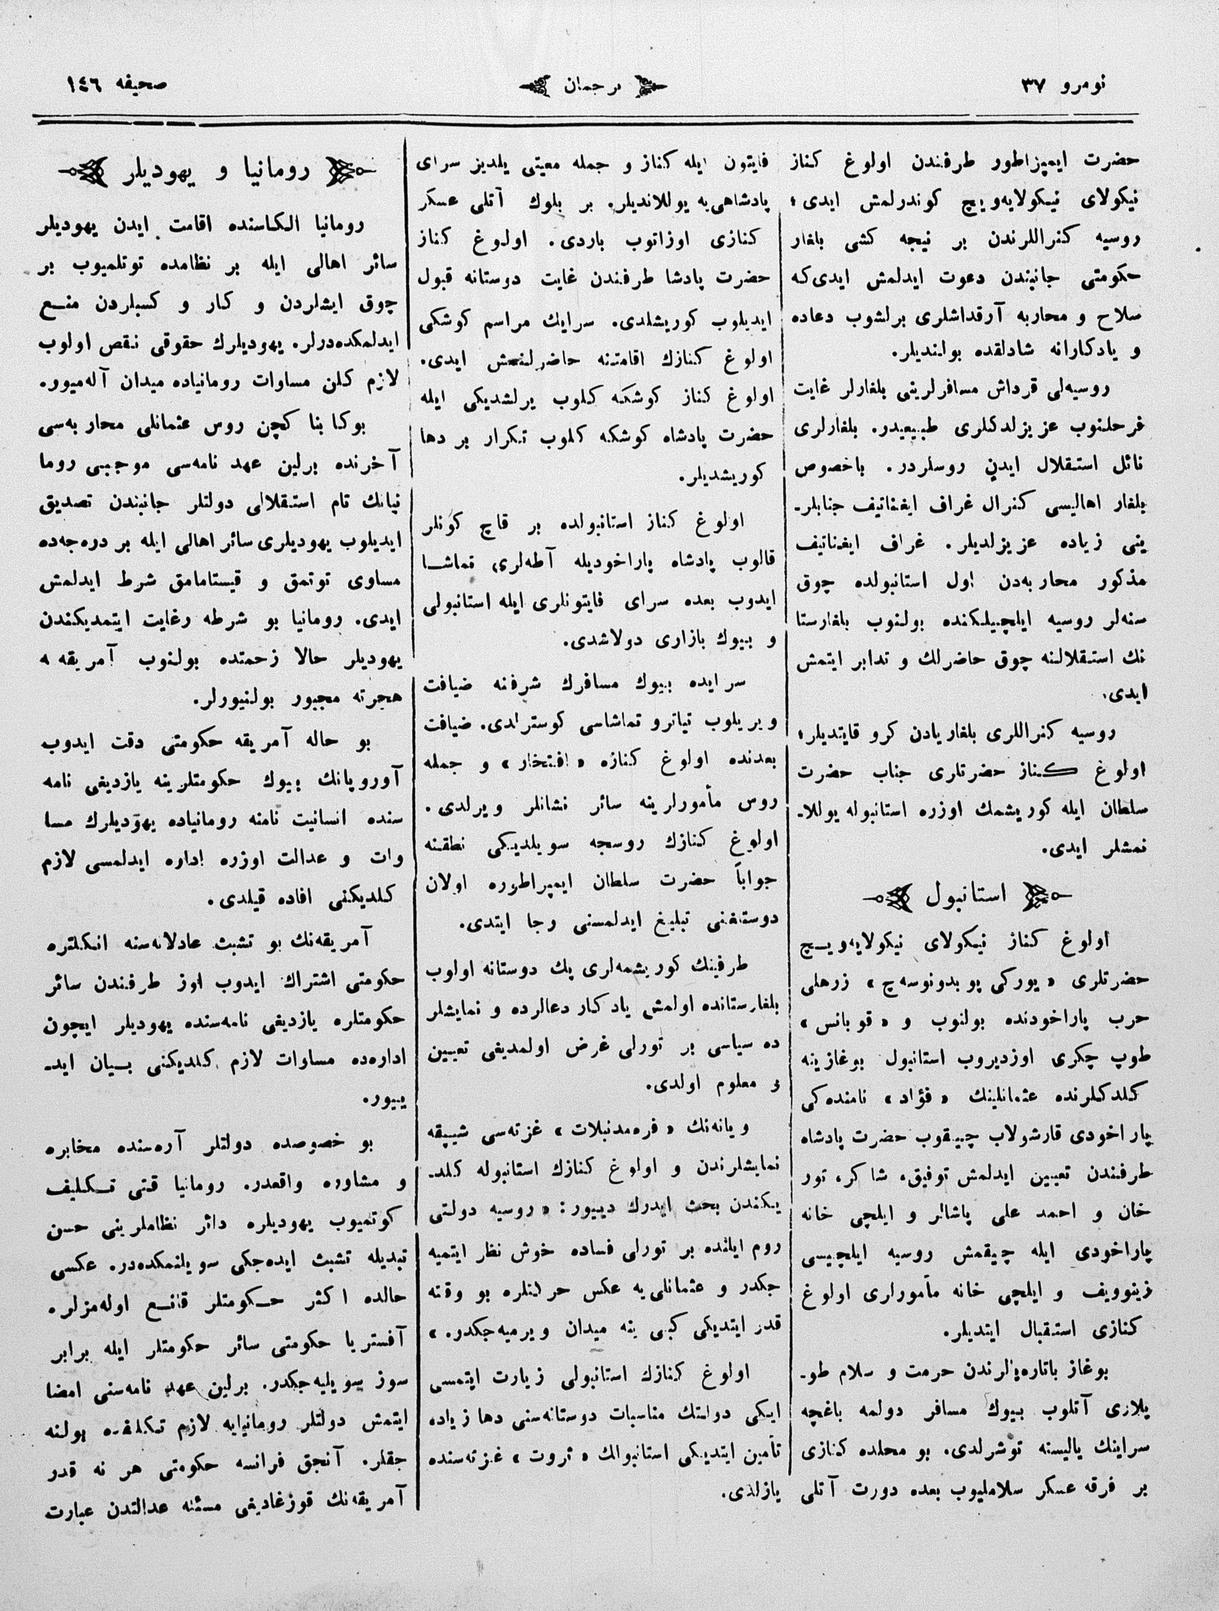 نومرو ٣٧
ترجمان
صحيفه ١٤٦
حضرت ايمپراطور طرفندن اولوغ كناز
نيكولاى نيكولايه‌ويچ كوندرلمش ايدى؛
روسيه كنراللرندن بر نيچه كشى بلغار
حكومتى جانبندن دعوت ايدلمش ايدى‌كه
سلاح و محاربه آرقداشلرى برلشوب دعاده
و يادكارانه شادلقده بولنديلر.
روسيه‌لى قرداش مسافرلرينى بلغارلر غايت
فرحلنوب عزيزلدكلرى طبيعيدر. بلغارلرى
نائل استقلال ايدن روسلردر. باخصوص
بلغار اهاليسى كنرال غراف ايغناتيف جنابلر‌ـ
ينى زياده عزيزلديلر. غراف ايغناتيف
مذكور محاربه‌دن اول استانبولده چوق
سنه‌لر روسيه ايلچيلكنده بولنوب بلغارستا
نك استقلالنه چوق حاضرلك و تدابر ايتمش
ايدى.
روسيه كنراللرى بلغاريادن كرو قايتديلر؛
اولوغ كناز حضرتلرى جناب حضرت
سلطان ايله كوريشمك اوزره استانبوله يوللا‌ـ
نمشلر ايدى.
استانبول
اولوغ كناز نيكولاى نيكولايه‌ويچ
حضرتلرى «يوركى پوبدونوسه‌چ» زرهلى
حرب پاراخودنده بولنوب و «قوبانس»
طوپ چكرى اوزديروب استانبول بوغازينه
كلدكلرنده عثمانلينك «فؤاد» نامنده‌كى
پاراخودى قارشولاب چيقوب حضرت پادشاه
طرفندن تعيين ايدلمش توفيق، شاكر، تور
خان و احمد على پاشالر و ايلچى خانه
پاراخودى ايله چيقمش روسيه ايلچيسى
زينوويف و ايلچى خانه مأمورلرى اولوغ
كنازى استقبال ايتديلر.
بوغاز باتاره‌يالرندن حرمت و سلام طو‌ـ
پلارى آتلوب بيوك مسافر دولمه باغچه
سراينك ياليسنه توشرلدى. بو محلده كنازى
بر فرقه عسكر سلامليوب بعده دورت آتلى
فايتون ايله كناز و جمله معيتى يلديز سراى
پادشاهى‌يه يوللانديلر. بر بلوك آتلى عسكر
كنازى اوزاتوب باردى. اولوغ كناز
حضرت پادشا طرفندن غايت دوستانه قبول
ايديلوب كوريشلدى. سرايك مراسم كوشكى
اولوغ كنازك اقامتنه حاضرلنمش ايدى.
اولوغ كناز كوشكه كلوب يرلشديكى ايله
حضرت پادشاه كوشكه كلوب تكرار بر دها
كوريشديلر.
اولوغ كناز استانبولده بر قاچ كونلر
قالوب پادشاه پاراخوديله آطه‌لرى تماشا
ايدوب بعده سراى فايتونلرى ايله استانبولى
و بيوك بازارى دولاشدى.
سرايده بيوك مسافرك شرفنه ضيافت
ويريلوب تياترو تماشاسى كوسترلدى. ضيافت
بعدنده اولوغ كنازه «افتخار» و جمله
روس مأمورلرينه سائر نشانلر ويرلدى.
اولوغ كنازك روسجه سويلديكى نطقنه
جواباً حضرت سلطان ايمپراطوره اولان
دوستلغنى تبليغ ايدلمسنى رجا ايتدى.
طرفينك كوريشمه‌لرى پك دوستانه اولوب
بلغارستانده اولمش يادكار دعالرده و نمايشلر
ده سياسى بر تورلى غرض اولمديغى تعيين
و معلوم اولدى.
ويانه‌نك «فره‌مدنبلات» غزته‌سى شيپقه
نمايشلرندن و اولوغ كنازك استانبوله كلد‌ـ
يكندن بحث ايدرك دييور: «روسيه دولتى
روم ايلنده بر تورلى فساده خوش نظر ايتميه
جكدر و عثمانلى‌يه عكس حركتلره بو وقته
قدر ايتديكى كبى ينه ميدان ويرميه‌جكدر.»
اولوغ كنازك استانبولى زيارت ايتمسى
ايكى دولتك مناسبات دوستانه‌سنى دها زياده
تأمين ايتديكى استانبولك «ثروت» غزته‌سنده
يازلدى.
رومانيا و يهوديلر
رومانيا الكاسنده اقامت ايدن يهوديلر
سائر اهالى ايله بر نظامده توتلميوب بر
چوق ايشلردن و كار و كسبلردن منع
ايدلمكده‌درلر. يهوديلرك حقوقى نقص اولوب
لازم كلن مساوات رومانياده ميدان آله‌ميور.
بوكا بنا كچن روس عثمانلى محاربه‌سى
آخرنده برلين عهد نامه‌سى موجبى روما
نيانك تام استقلالى دولتلر جانبندن تصديق
ايديلوب يهوديلرى سائر اهالى ايله بر دره‌جه‌ده
مساوى توتمق و قيستامامق شرط ايدلمش
ايدى. رومانيا بو شرطه رغايت ايتمديكندن
يهوديلر حالا زحمتده بولنوب آمريقه‌ه
هجرته مجبور بولنيورلر.
بو حاله آمريقه حكومتى دقت ايدوب
آوروپانك بيوك حكومتلرينه يازديغى نامه
سنده انسانيت نامنه رومانياده يهوديلرك مسا
وات و عدالت اوزره اداره ايدلمسى لازم
كلديكنى افاده قيلدى.
آمريقه‌نك بو تشبث عادلانه‌سنه انكلتره
حكومتى اشتراك ايدوب اوز طرفندن سائر
حكومتلره يازديغى نامه‌سنده يهوديلر ايچون
اداره‌ده مساوات لازم كلديكنى بيان ايد‌ـ
ييور.
بو خصوصده دولتلر آره‌سنده مخابره
و مشاوره واقعدر. رومانيا قتى تكليف
كوتميوب يهوديلره دائر نظاملرينى حسن
تبديله تشبث ايده‌جكى سويلنمكده‌در. عكسى
حالده اكثر حكومتلر قانع اوله‌مزلر.
آفستريا حكومتى سائر حكومتلر ايله برابر
سوز سويليه‌جكدر. برلين عهد نامه‌سنى امضا
ايتمش دولتلر رومانيايه لازم تكلفده بولنه
جقلر. آنجق فرانسه حكومتى هر نه قدر
آمريقه‌نك قوزغاديغى مسئله عدالتدن عبارت